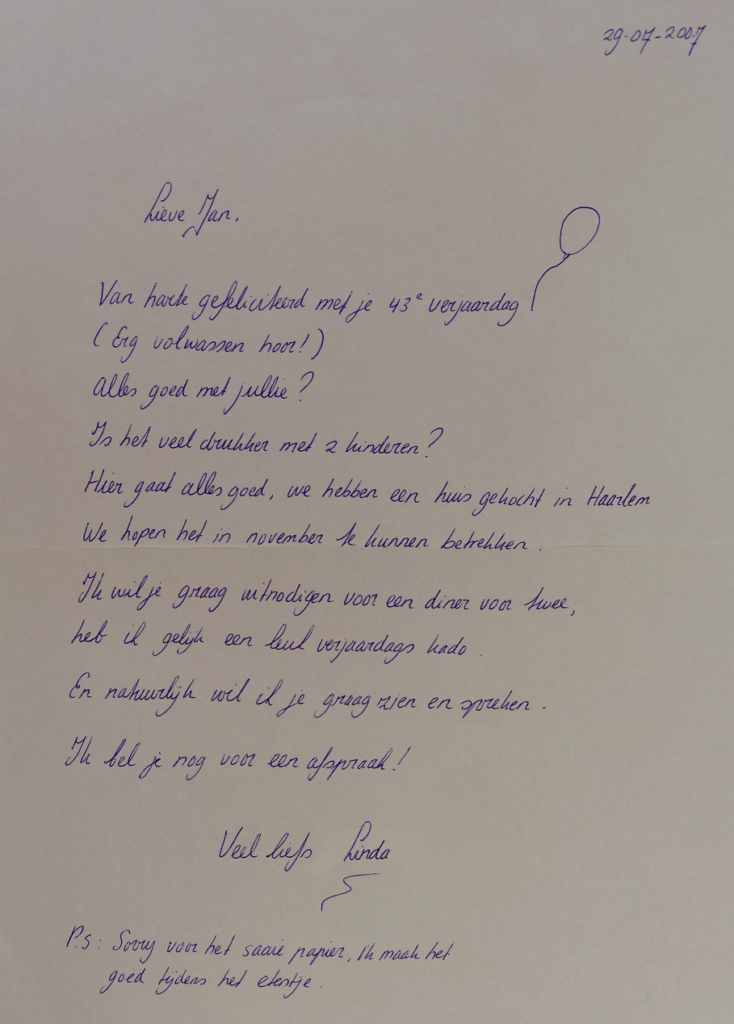 29-07-2007
Lieve Jan,
Van harte gefeliciteerd met je 43e verjaardag
(Erg volwassen hoor!)
Alles goed met jullie?
Is het veel drukker met 2 kinderen?
Hier gaat alles goed, we hebben een huis gekocht in Haarlem
We hopen het in november te kunnen betrekken.
Ik wil je graag uitnodigen voor een diner voor twee,
heb ik gelijk een leuk verjaardags kado.
En natuurlijk wil ik je graag zien en spreken.
Ik bel je nog voor een afspraak!
Veel liefs Linda
P.s: Sorry voor het saaie papier, ik maak het
goed tijdens het etentje.